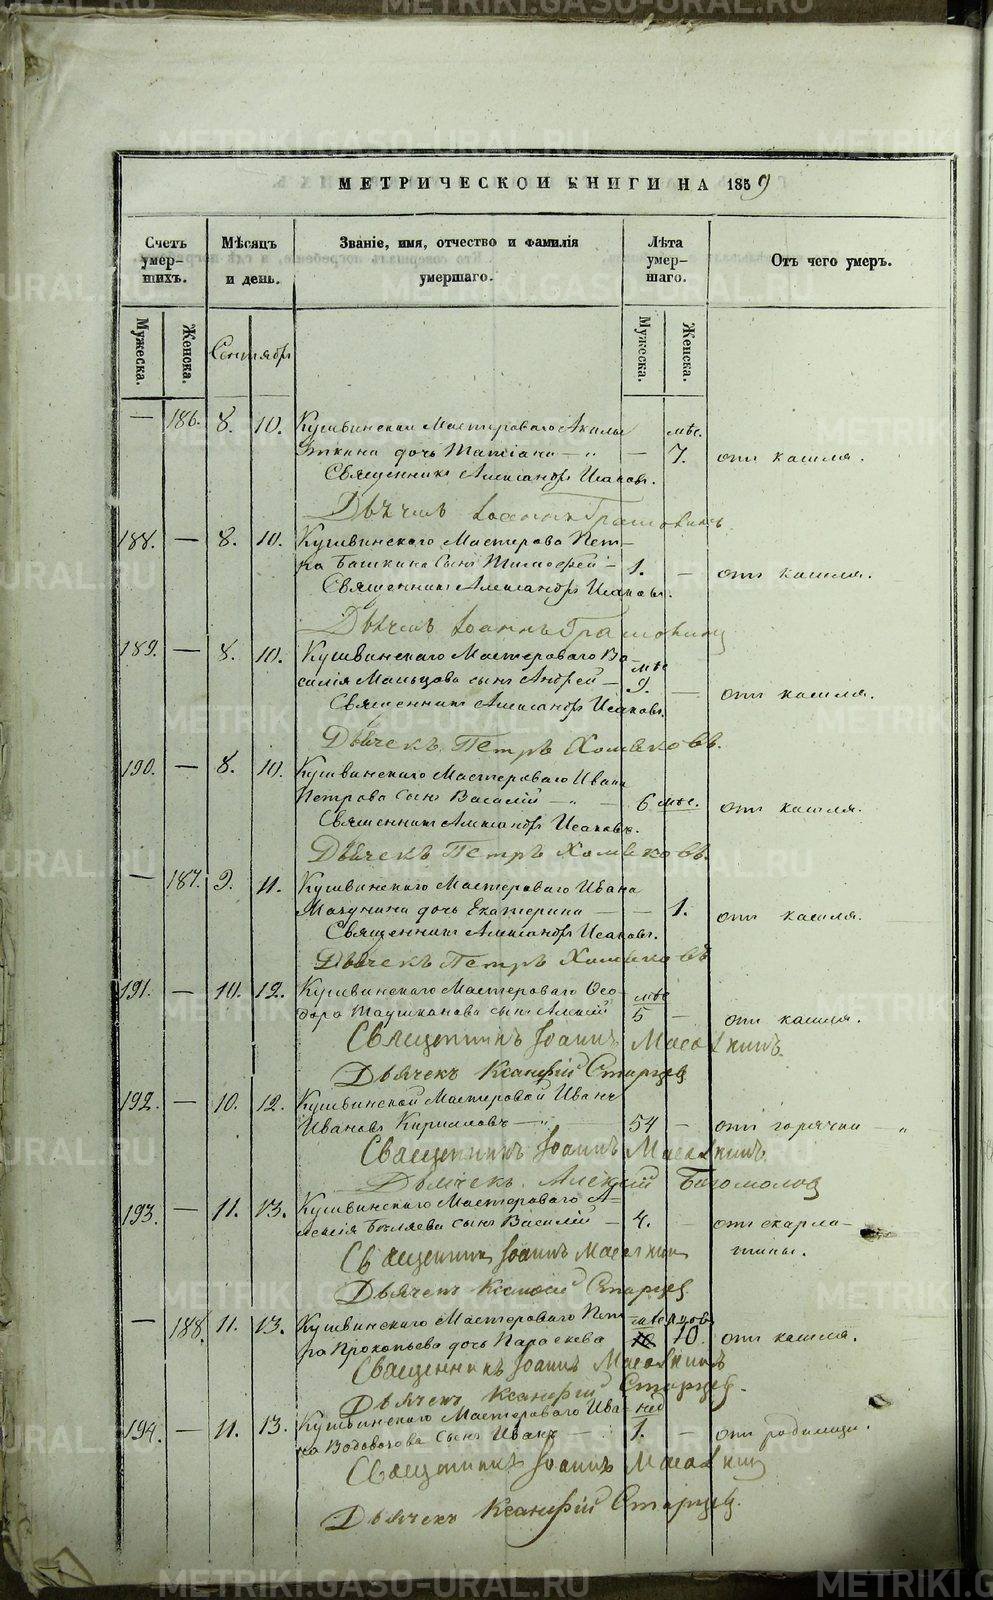 METRIKI.GASO-URAL.RU
МЕТРИЧЕСКОЙ КНИГИ НА 1859
Счетъ умер- шихъ.
Мѣсяцъ и день.
Званіе, имя, отчество и фамилія умершаго.
Лѣта умер- шаго.
Отъ чего умеръ.
Мужеска.
Женска.
Сентябрь
Мужеска.
Женска.
— 186. 8. 10. Кушвинскаго Мастероваго Акилы мѣс.
дочь Татіана — „ — 7. отъ кашля.
Священникъ Александръ Исаковъ.
Дьячекъ Іоаннъ
188. — 8. 10. Кушвинскаго Мастерова Пет-
ра Башкина сынъ Тимофей — 1. — отъ кашля.
Священникъ Александръ Исаковъ.
Дьячекъ Іоаннъ
189. — 8. 10. Кушвинскаго Мастероваго Ва- мѣс
силія Мальцова сынъ Андрей — 9. — отъ кашля.
Священникъ Александръ Исаковъ.
Дьячекъ Петръ Хомяковъ.
190. — 8. 10. Кушвинскаго Мастероваго Ивана
Петрова сынъ Василій — „ — 6 мѣс. отъ кашля.
Священникъ Александръ Исаковъ.
Дьячекъ Петръ Хомяковъ.
— 187. 9. 11. Кушвинскаго Мастероваго Ивана
дочь Екатерина — — 1. отъ кашля.
Священникъ Александръ Исаковъ.
Дьячекъ Петръ Хомяковъ
191. — 10. 12. Кушвинскаго Мастероваго Ѳео- мѣс
дора сынъ Алексій 5 — отъ кашля.
Священникъ Іоаннъ
Дьячекъ Ксанфій Старцев
192. — 10. 12. Кушвинской Мастеровой Иванъ
Ивановъ Кириловъ — „ 54 — отъ горячки — „
Священникъ Іоаннъ
Дьячекъ Алексій Богомолов
193. — 11. 13. Кушвинскаго Мастероваго А-
лексія Бѣляева сынъ Василій — 4. отъ скарла-
тины.
Священникъ Іоаннъ
Дьячекъ Ксанфій Старцев.
— 188. 11. 13. Кушвинскаго Мастероваго Пет- мѣсяцовъ
ра Прокопьева дочь Параскева 10. отъ кашля.
Священникъ Іоаннъ
Дьячекъ Ксанфій Старцев.
194. — 11. 13. Кушвинскаго Мастероваго Ива- нед
на Водовозова сынъ Иванъ — 1. — отъ родимца.
Священникъ Іоаннъ
Дьячекъ Ксанфій Старцев.
METRIKI.GASO-URAL.RU